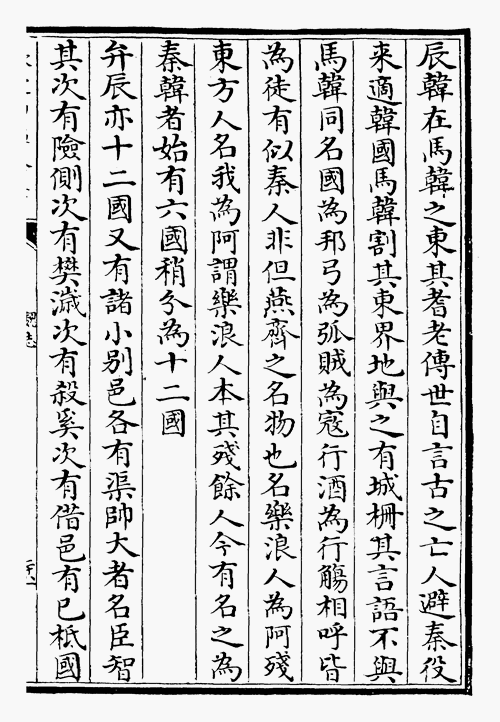 辰韓在馬韓之東其耆老傳世自言古之亡人避秦役
来適韓國馬韓割其東界地與之有城柵其言語不與
馬韓同名國為邦弓為弧賊為寇行酒為行觴相呼皆
為徒有似秦人非但燕齊之名物也名樂浪人為阿殘
東方人名我為阿謂樂浪人本其殘餘人今有名之為
秦韓者始有六國稍分為十二國
弁辰亦十二國又有諸小别邑各有渠帥大者名臣智
其次有險側次有樊濊次有殺奚次有借邑有已柢國